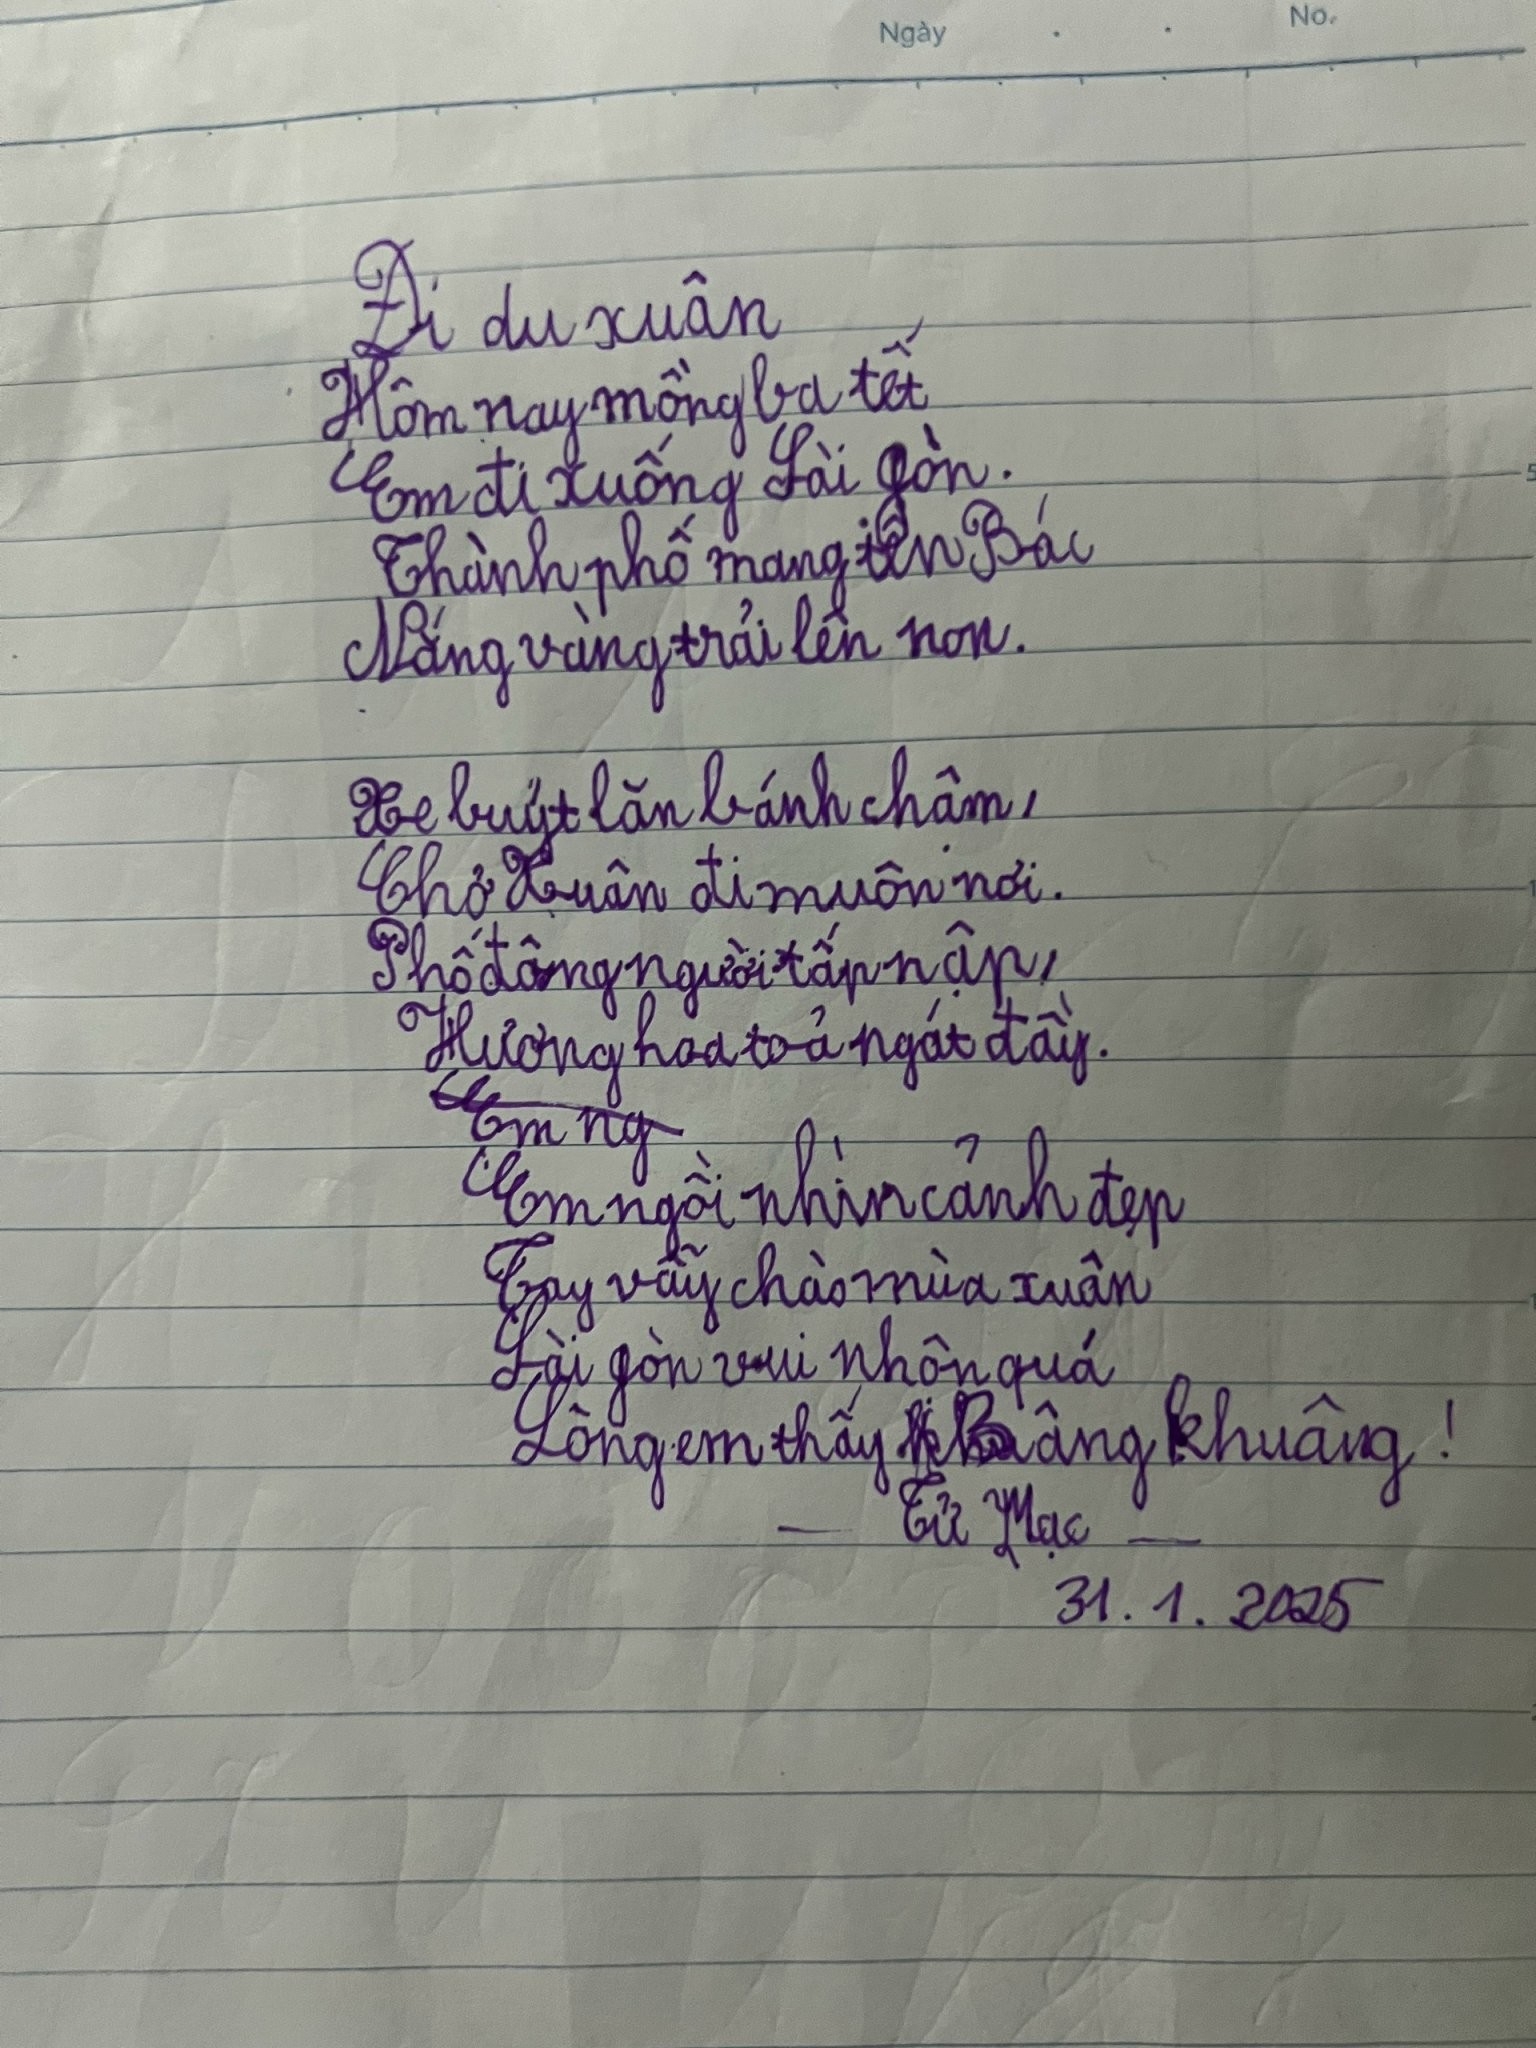 Ngày
No.
Đi du xuân
Hôm nay mồng ba tết
Em đi xuống Sài gòn.
Thành phố mang tên Bác
Nắng vàng trải lên non.
Xe buýt lăn bánh châm,
Chở Xuân đi muôn nơi.
Phố đông người tấp nập,
Hương hoa toả ngát đầy.
Em ng
Em ngồi nhìn cảnh đẹp
Tay vẫy chào mùa xuân
Sài gòn vui nhộn quá
Lòng em thấy Bâng khuâng!
— Tử Mạc —
31.1.2025